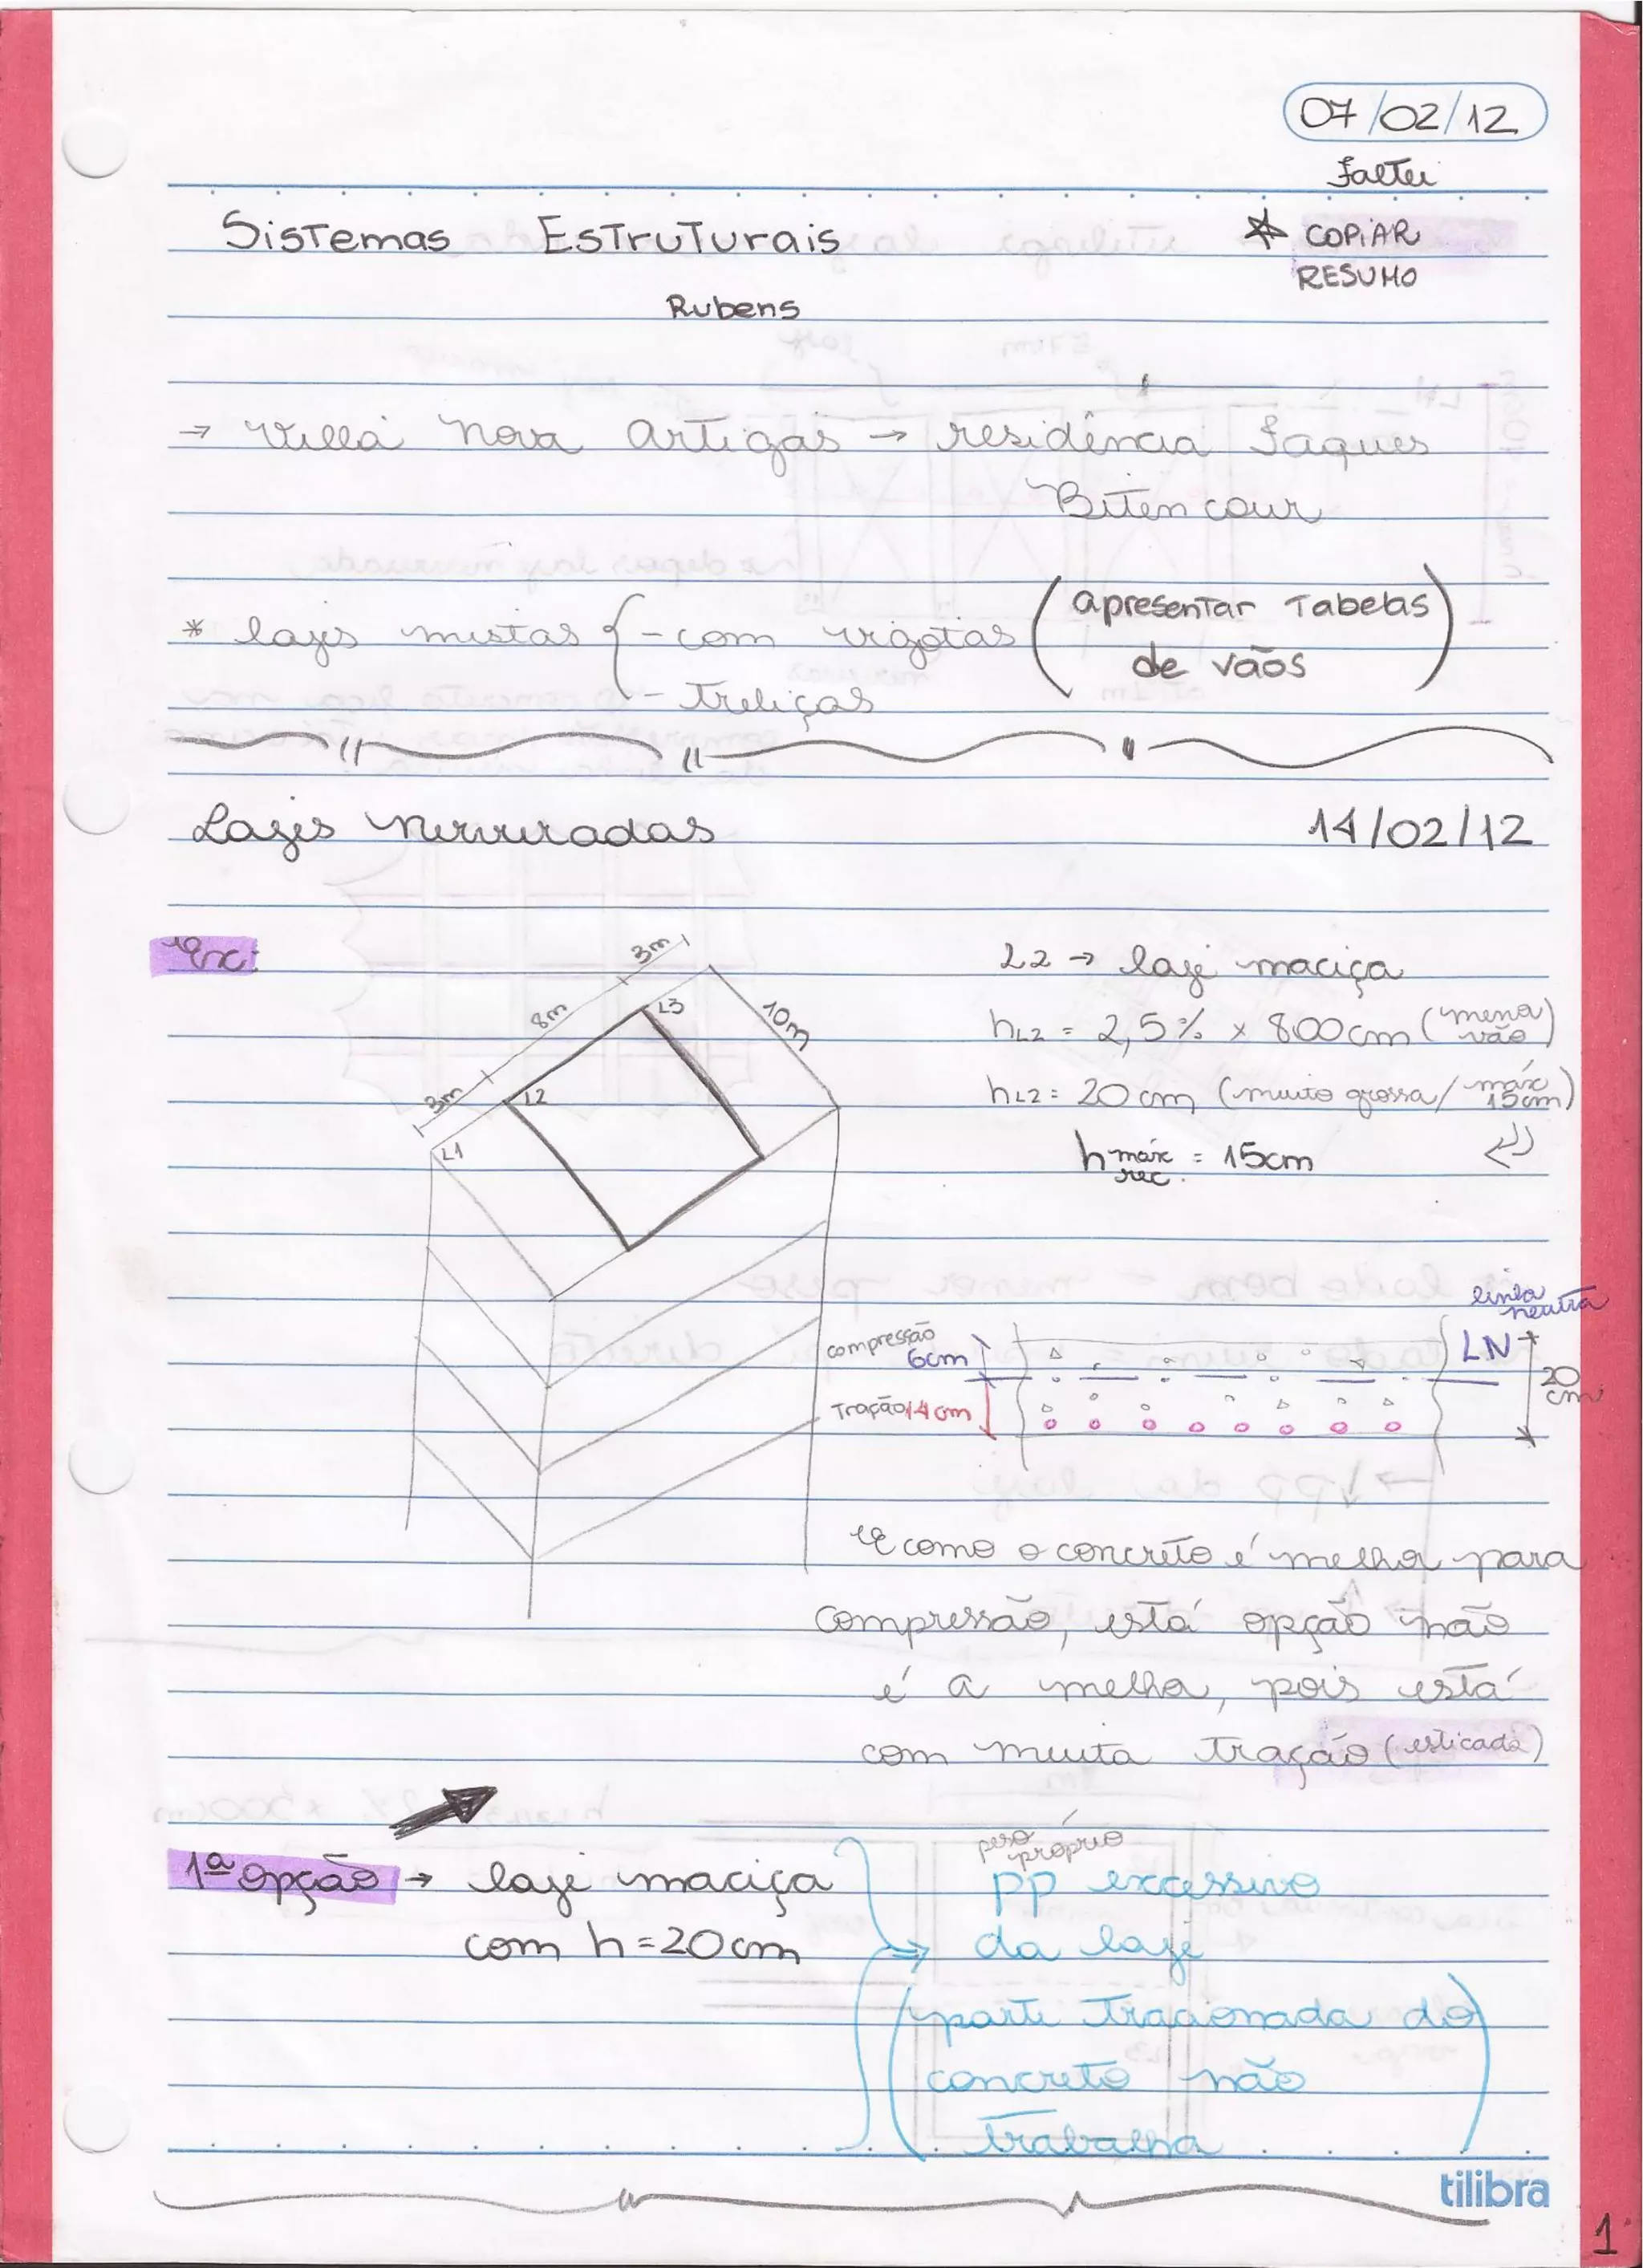 07/02/12
Faltei
Sistemas Estruturais
* COPiAR
RESUMO
Rubens
→ Villa Nova Artigas → residência Jaques
Bitencour
* lajes mistas { - com vigotas (apresentar Tabelas
de vãos)
- treliças
Lajes Nervuradas 14/02/12
Ex:
3m
8m
3m
10m
L1
L2
L3
L2 → laje maciça
hL2 = 2,5% x 800cm (menor vão)
hL2 = 20cm (muito grossa/ máx 15cm)
h máx rec. = 15cm
linha neutra
compressão
6cm
LN
20 cm
Tração 14cm
E como o concreto é melhor para
compressão, está opção não
é a melhor, pois está
com muita tração (esticada)
1ª opção → laje maciça
com h=20cm
peso próprio
pp excessivo
da laje
(parte tracionada do
concreto não
trabalha)
tilibra
1